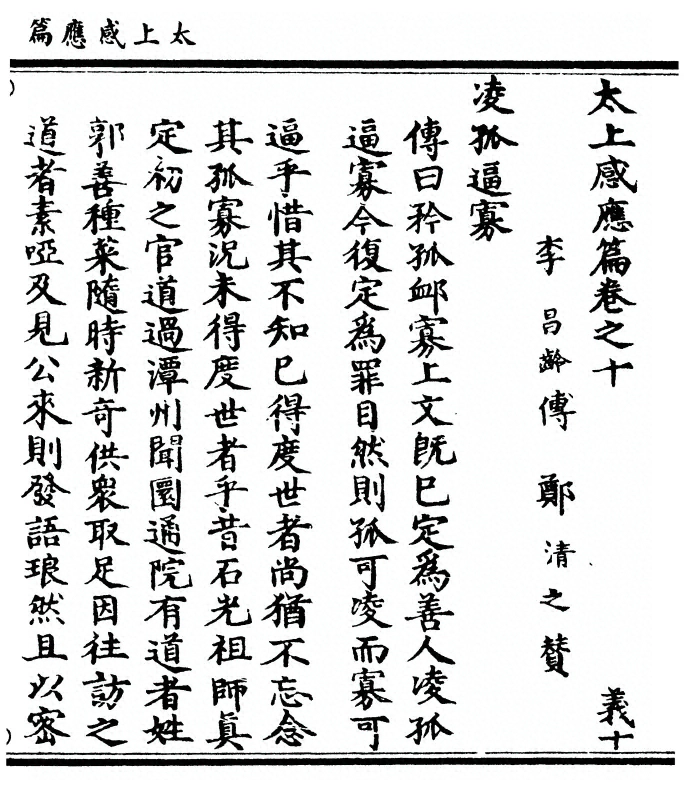 太上感應篇
太上感應篇卷之十 義十
李昌齡傳 鄭清之贊
凌孤逼寡
傳曰矜孤䘏寡上文既已定為善人凌孤
逼寡今復定為罪目然則孤可凌而寡可
逼乎惜其不知已得度世者尚猶不忘念
其孤寡況未得度世者乎昔石光祖師真
定初之官道過潭州聞圜通院有道者姓
郭善種菜隨時新奇供衆取足因往訪之
道者素啞及見公來則發語琅然且以密